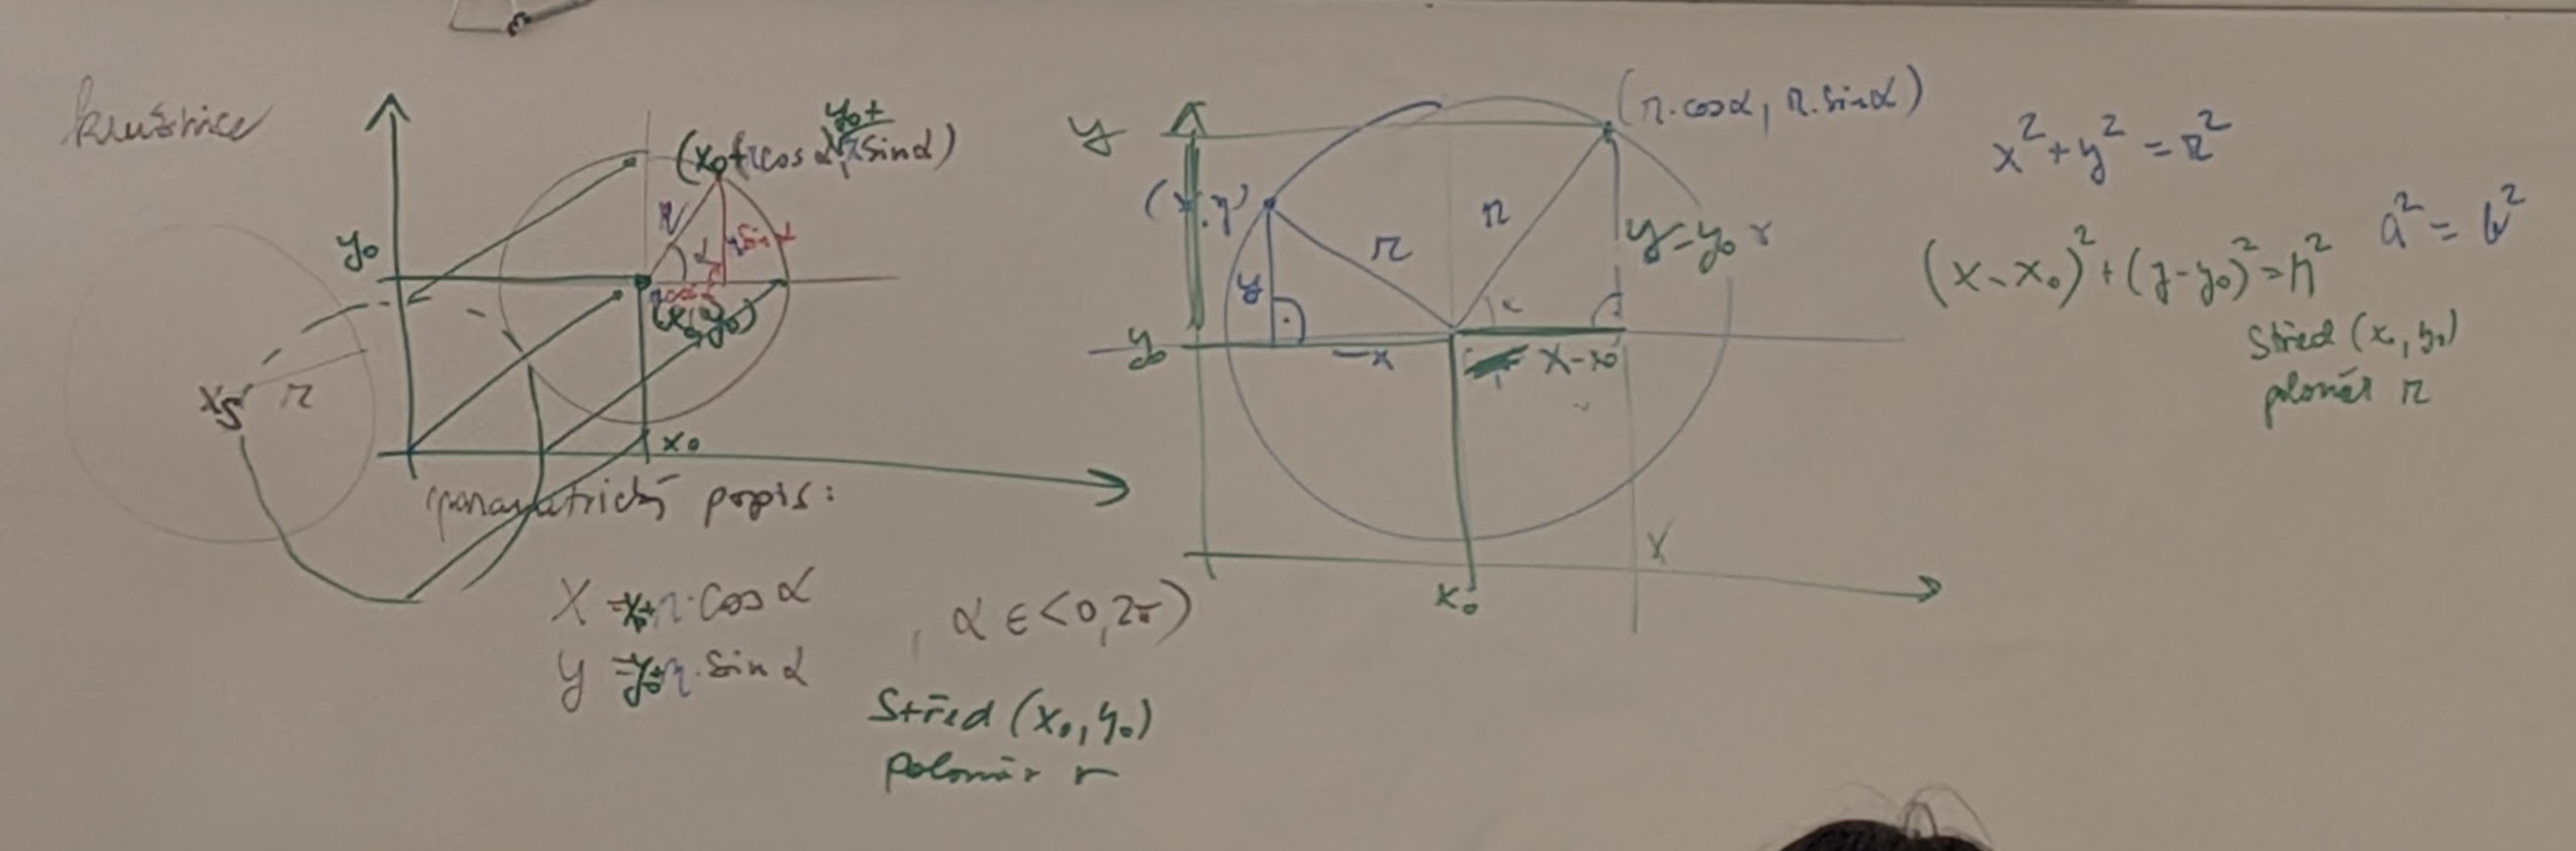 kružnice
y₀
y₀+
(x₀+r cos α, r sin α)
r
α
r sin α
r cos α
(x₀, y₀)
r
x₀
parametrický popis:
x = x₀+r·cos α
y = y₀+r·sin α
, α ∈ <0,2π)
Střed (x₀, y₀)
poloměr r
y
(r·cos α, r·sin α)
r
r
y
y-y₀
y₀
-x
x-x₀
x
x₀
x² + y² = r²
a² = b²
(x-x₀)² + (y-y₀)² = r²
Střed (x₀, y₀)
poloměr r